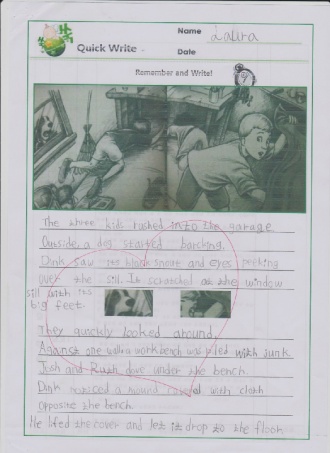 Name Laura
Quick Write
Date
Remember and Write!
The three kids rushed into the garage.
Outside a dog started barking.
Dink saw its black snout and eyes peeking
over the sill. It scratched at the window
sill with its
big feet.
They quickly looked around.
Against one wall a workbench was piled with junk.
Josh and Ruth dove under the bench.
Dink noticed a mound covered with cloth
opposite the bench.
He lifed the cover and let it drop to the floor.